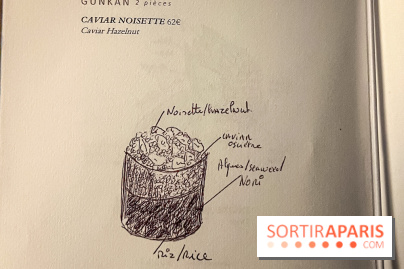 GUNKAN 2 pièces
CAVIAR NOISETTE 62€
Caviar Hazelnut
Noisette/Hazelnut
CAVIAR
OSCIETRE
Algues/seaweed/
NORi
Riz/Rice
SORTIRAPARIS
.COM